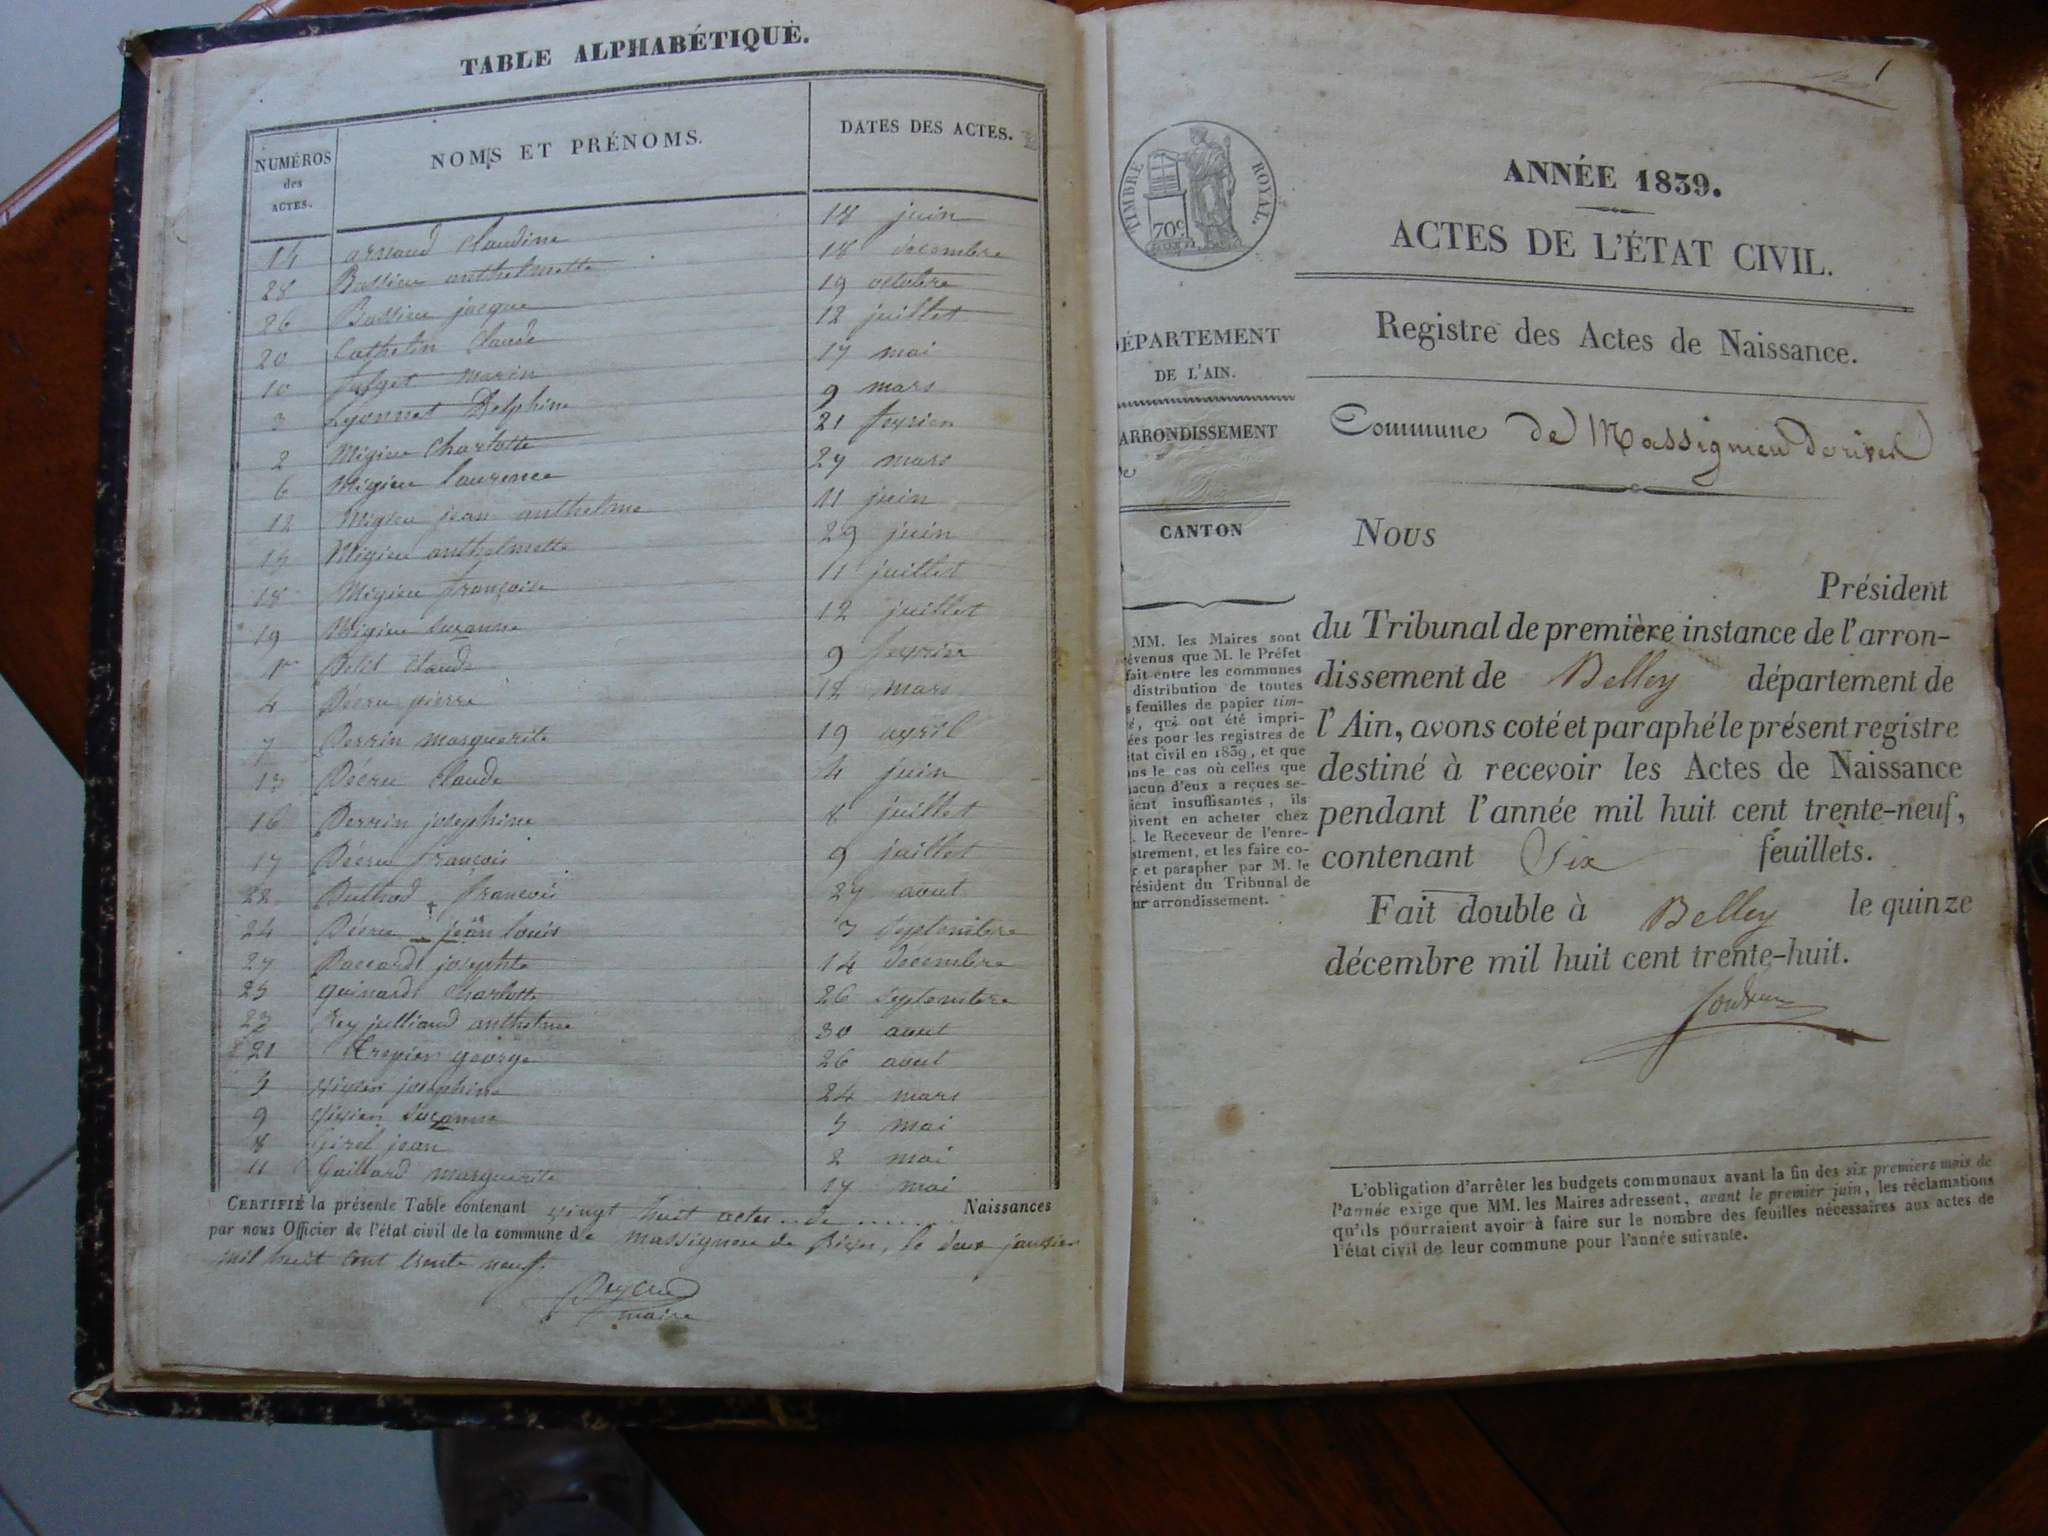 TABLE ALPHABÉTIQUE.
NUMÉROS des ACTES. NOMS ET PRÉNOMS. DATES DES ACTES.
14 arnaud Claudine 18 juin
28 Bassieu anthelmette 18 decembre
26 Bassieu jacque 19 octobre
20 Cathelin Claude 12 juillet
10 marin 17 mai
3 Lyonnet Delphine 9 mars
2 Migieu Charlotte 21 fevrier
6 Migieu laurence 27 mars
12 Migieu jean anthelme 11 juin
15 Migieu anthelmette 29 juin
18 Migieu françoise 11 juillet
19 Migieu suzanne 12 juillet
1er Claude 9 fevrier
4 Pécru pierre 12 mars
7 Perrin marguerite 19 avril
13 Pécru Claude 4 juin
16 Perrin josephine 8 juillet
17 Pécru françois 9 juillet
22 françois 27 aout
24 Pécru jean louis 3 septembre
27 josephte 14 decembre
25 guinard Charlotte 26 septembre
23 Rey julliand anthelme 30 aout
21 Trepier george 26 aout
5 vivien josephine 24 mars
9 vivien suzanne 5 mai
8 jean 2 mai
11 Gaillard marguerite 17 mai
CERTIFIÉ la présente Table contenant vingt huit actes de Naissances
par nous Officier de l'état civil de la commune de massigneu de Rives, le deux janvier
mil huit cent trente neuf.
maire
1
TIMBRE ROYAL.
70c
ANNÉE 1839.
ACTES DE L'ÉTAT CIVIL.
Registre des Actes de Naissance.
ÉPARTEMENT
DE L'AIN.
ARRONDISSEMENT
CANTON
Commune de Massignieu derives
Nous
Président
du Tribunal de première instance de l'arron-
dissement de Belley département de
l'Ain, avons coté et paraphé le présent registre
destiné à recevoir les Actes de Naissance
pendant l'année mil huit cent trente-neuf,
contenant Six feuillets.
Fait double à Belley le quinze
décembre mil huit cent trente-huit.
MM. les Maires sont
évenus que M. le Préfet
fait entre les communes
distribution de toutes
s feuilles de papier tim-
é, qui ont été impri-
ées pour les registres de
état civil en 1839, et que
ans le cas où celles que
hacun d'eux a reçues se-
ient insuffisantes, ils
oivent en acheter chez
. le Receveur de l'enre-
strement, et les faire co-
r et parapher par M. le
résident du Tribunal de
ur arrondissement.
L'obligation d'arrêter les budgets communaux avant la fin des six premiers mois de
l'année exige que MM. les Maires adressent, avant le premier juin, les réclamations
qu'ils pourraient avoir à faire sur le nombre des feuilles nécessaires aux actes de
l'état civil de leur commune pour l'année suivante.